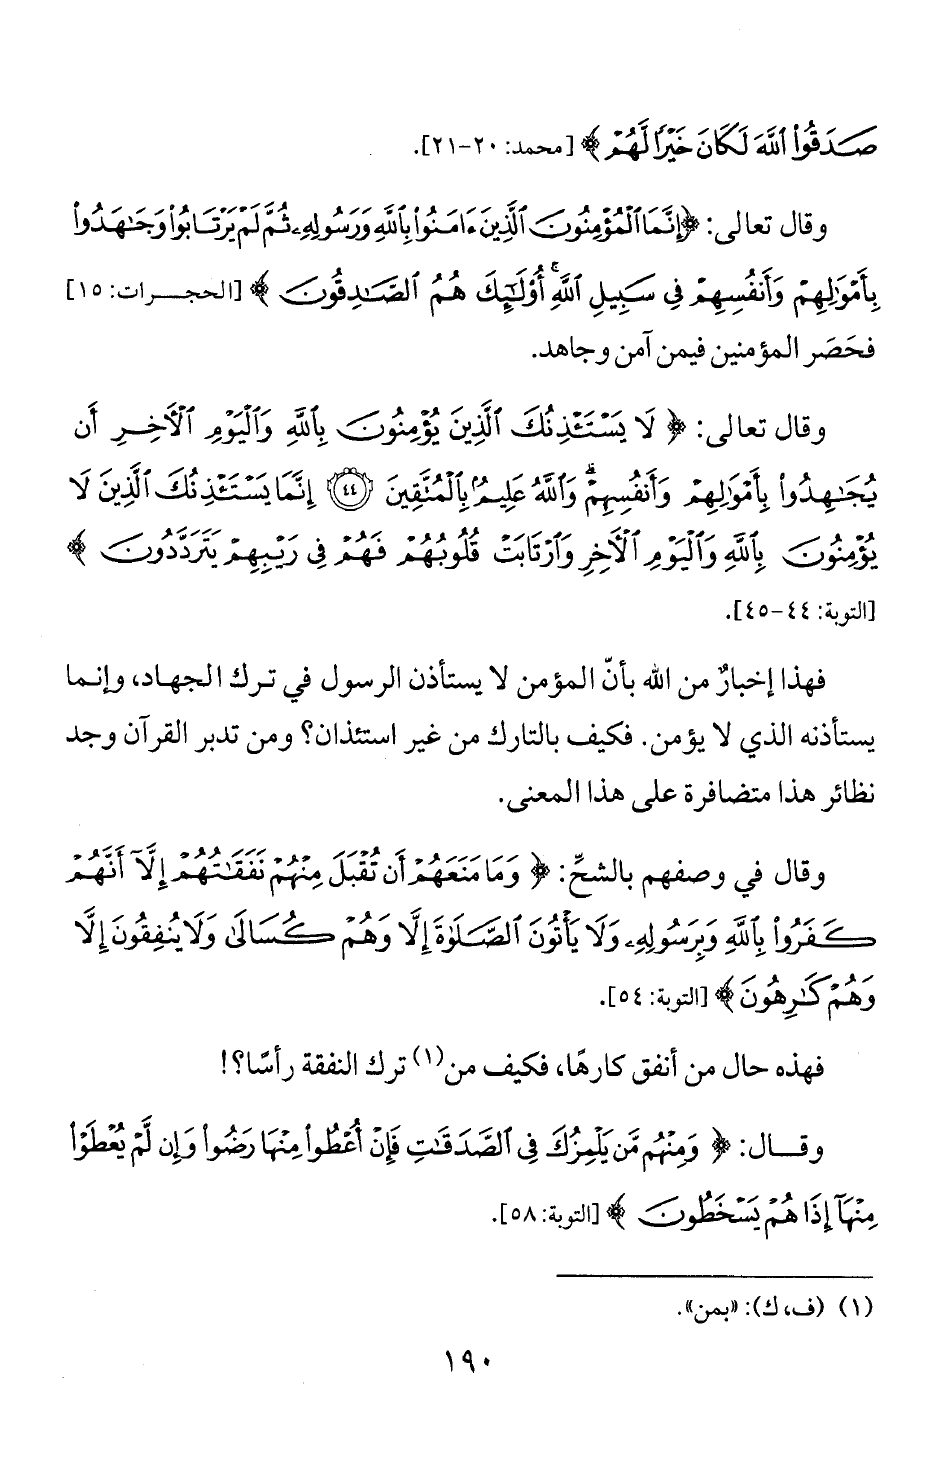 صَدَقُوا۟ ٱللَّهَ لَكَانَ خَيْرًا لَّهُمْ ﴾ [محمد: ٢٠-٢١].
وقال تعالى: ﴿إِنَّمَا ٱلْمُؤْمِنُونَ ٱلَّذِينَ ءَامَنُوا۟ بِٱللَّهِ وَرَسُولِهِۦ ثُمَّ لَمْ يَرْتَابُوا۟ وَجَٰهَدُوا۟
بِأَمْوَٰلِهِمْ وَأَنفُسِهِمْ فِى سَبِيلِ ٱللَّهِ ۚ أُو۟لَٰٓئِكَ هُمُ ٱلصَّٰدِقُونَ ﴾ [الحجرات: ١٥]
فحَصَر المؤمنين فيمن آمن وجاهد.
وقال تعالى: ﴿ لَا يَسْتَـْٔذِنُكَ ٱلَّذِينَ يُؤْمِنُونَ بِٱللَّهِ وَٱلْيَوْمِ ٱلْـَٔاخِرِ أَن
يُجَٰهِدُوا۟ بِأَمْوَٰلِهِمْ وَأَنفُسِهِمْ ۗ وَٱللَّهُ عَلِيمٌۢ بِٱلْمُتَّقِينَ ﴿٤٤﴾ إِنَّمَا يَسْتَـْٔذِنُكَ ٱلَّذِينَ لَا
يُؤْمِنُونَ بِٱللَّهِ وَٱلْيَوْمِ ٱلْـَٔاخِرِ وَٱرْتَابَتْ قُلُوبُهُمْ فَهُمْ فِى رَيْبِهِمْ يَتَرَدَّدُونَ ﴾
[التوبة: ٤٤-٤٥].
فهذا إخبارٌ من الله بأنّ المؤمن لا يستأذن الرسول في ترك الجهاد، وإنما
يستأذنه الذي لا يؤمن. فكيف بالتارك من غير استئذان؟ ومن تدبر القرآن وجد
نظائر هذا متضافرة على هذا المعنى.
وقال في وصفهم بالشحِّ: ﴿ وَمَا مَنَعَهُمْ أَن تُقْبَلَ مِنْهُمْ نَفَقَٰتُهُمْ إِلَّآ أَنَّهُمْ
كَفَرُوا۟ بِٱللَّهِ وَبِرَسُولِهِۦ وَلَا يَأْتُونَ ٱلصَّلَوٰةَ إِلَّا وَهُمْ كُسَالَىٰ وَلَا يُنفِقُونَ إِلَّا
وَهُمْ كَٰرِهُونَ ﴾ [التوبة: ٥٤].
فهذه حال من أنفق كارهًا، فكيف من(١) ترك النفقة رأسًا؟!
وقال: ﴿ وَمِنْهُم مَّن يَلْمِزُكَ فِى ٱلصَّدَقَٰتِ فَإِنْ أُعْطُوا۟ مِنْهَا رَضُوا۟ وَإِن لَّمْ يُعْطَوْا۟
مِنْهَآ إِذَا هُمْ يَسْخَطُونَ ﴾ [التوبة: ٥٨].
(١) (ف، ك): «بمن».
١٩٠